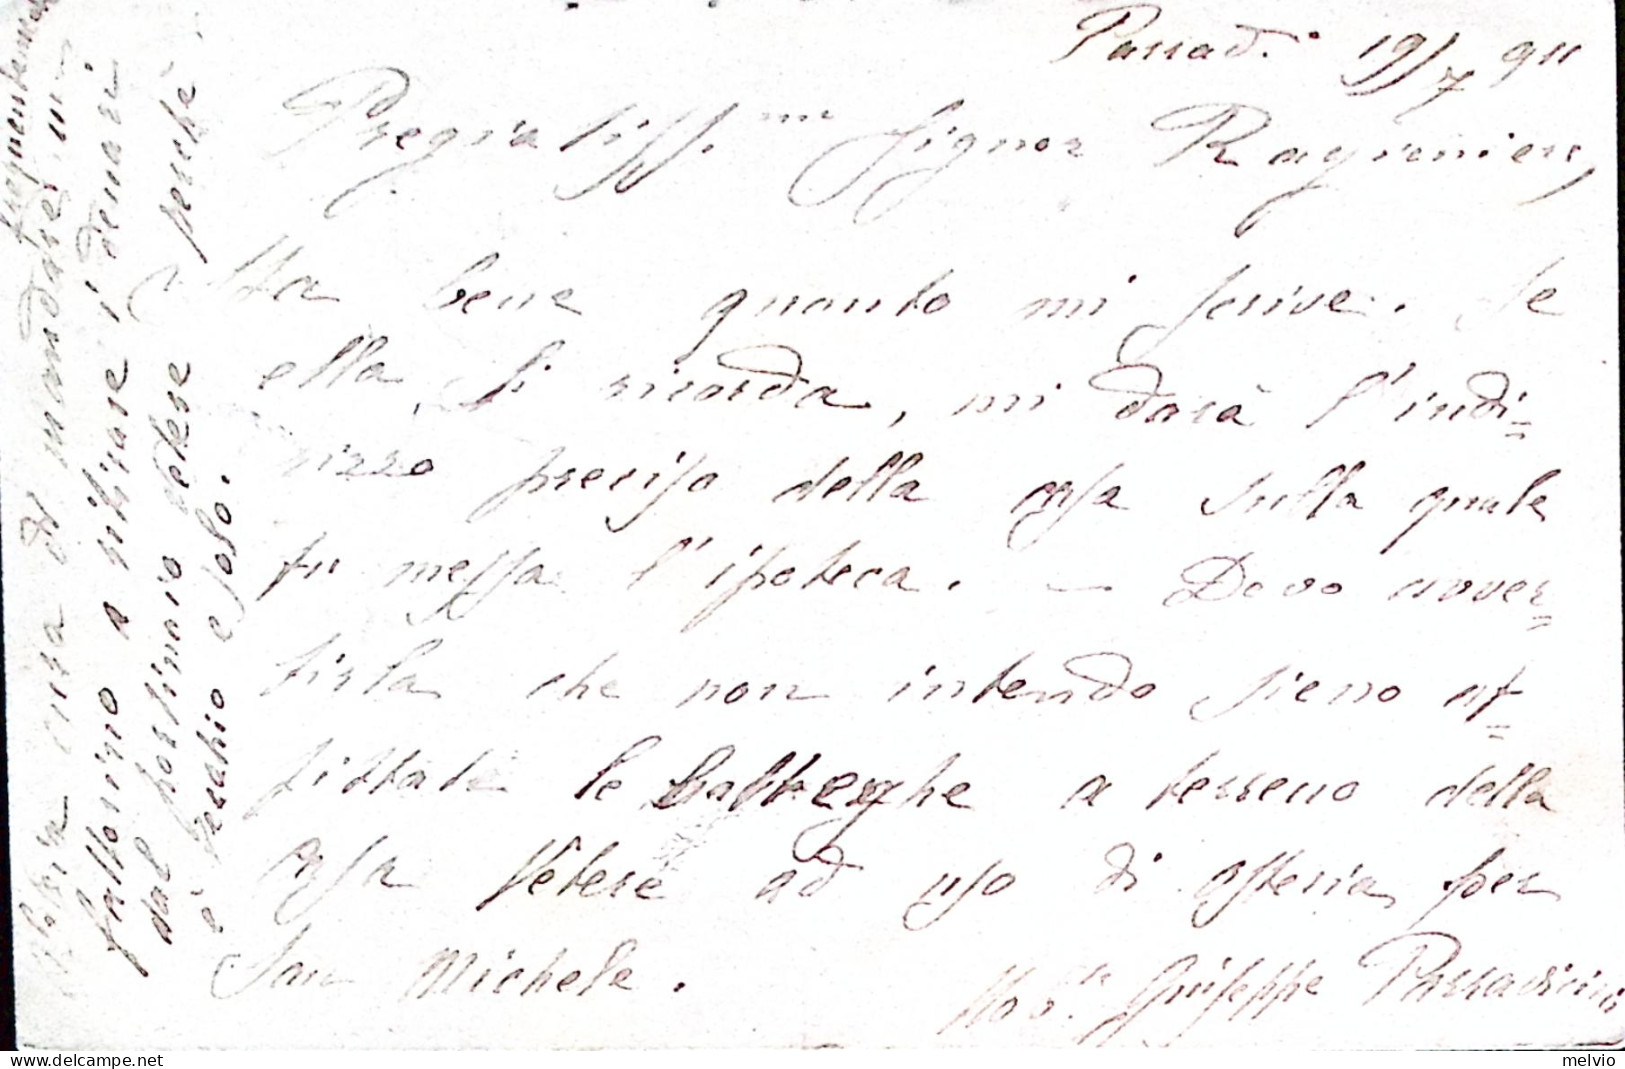 Passad. 19/7 911
Pregiatiss.mo Signor Ragioniere,
Sta bene quanto mi scrive. Se
ella si ricorda, mi darà l'indi=
rizzo preciso della casa sulla quale
fu messa l'ipoteca. — Devo avver=
tirla che non intendo sieno af=
fittate le botteghe a terreno della
casa Vetere ad uso di osteria per
San Michele.
Giuseppe Passadini
cura di mandare un
fattorino a ritirare i denari
dal portinaio Vetere perché
è vecchio e solo.
delcampe.net
melvio